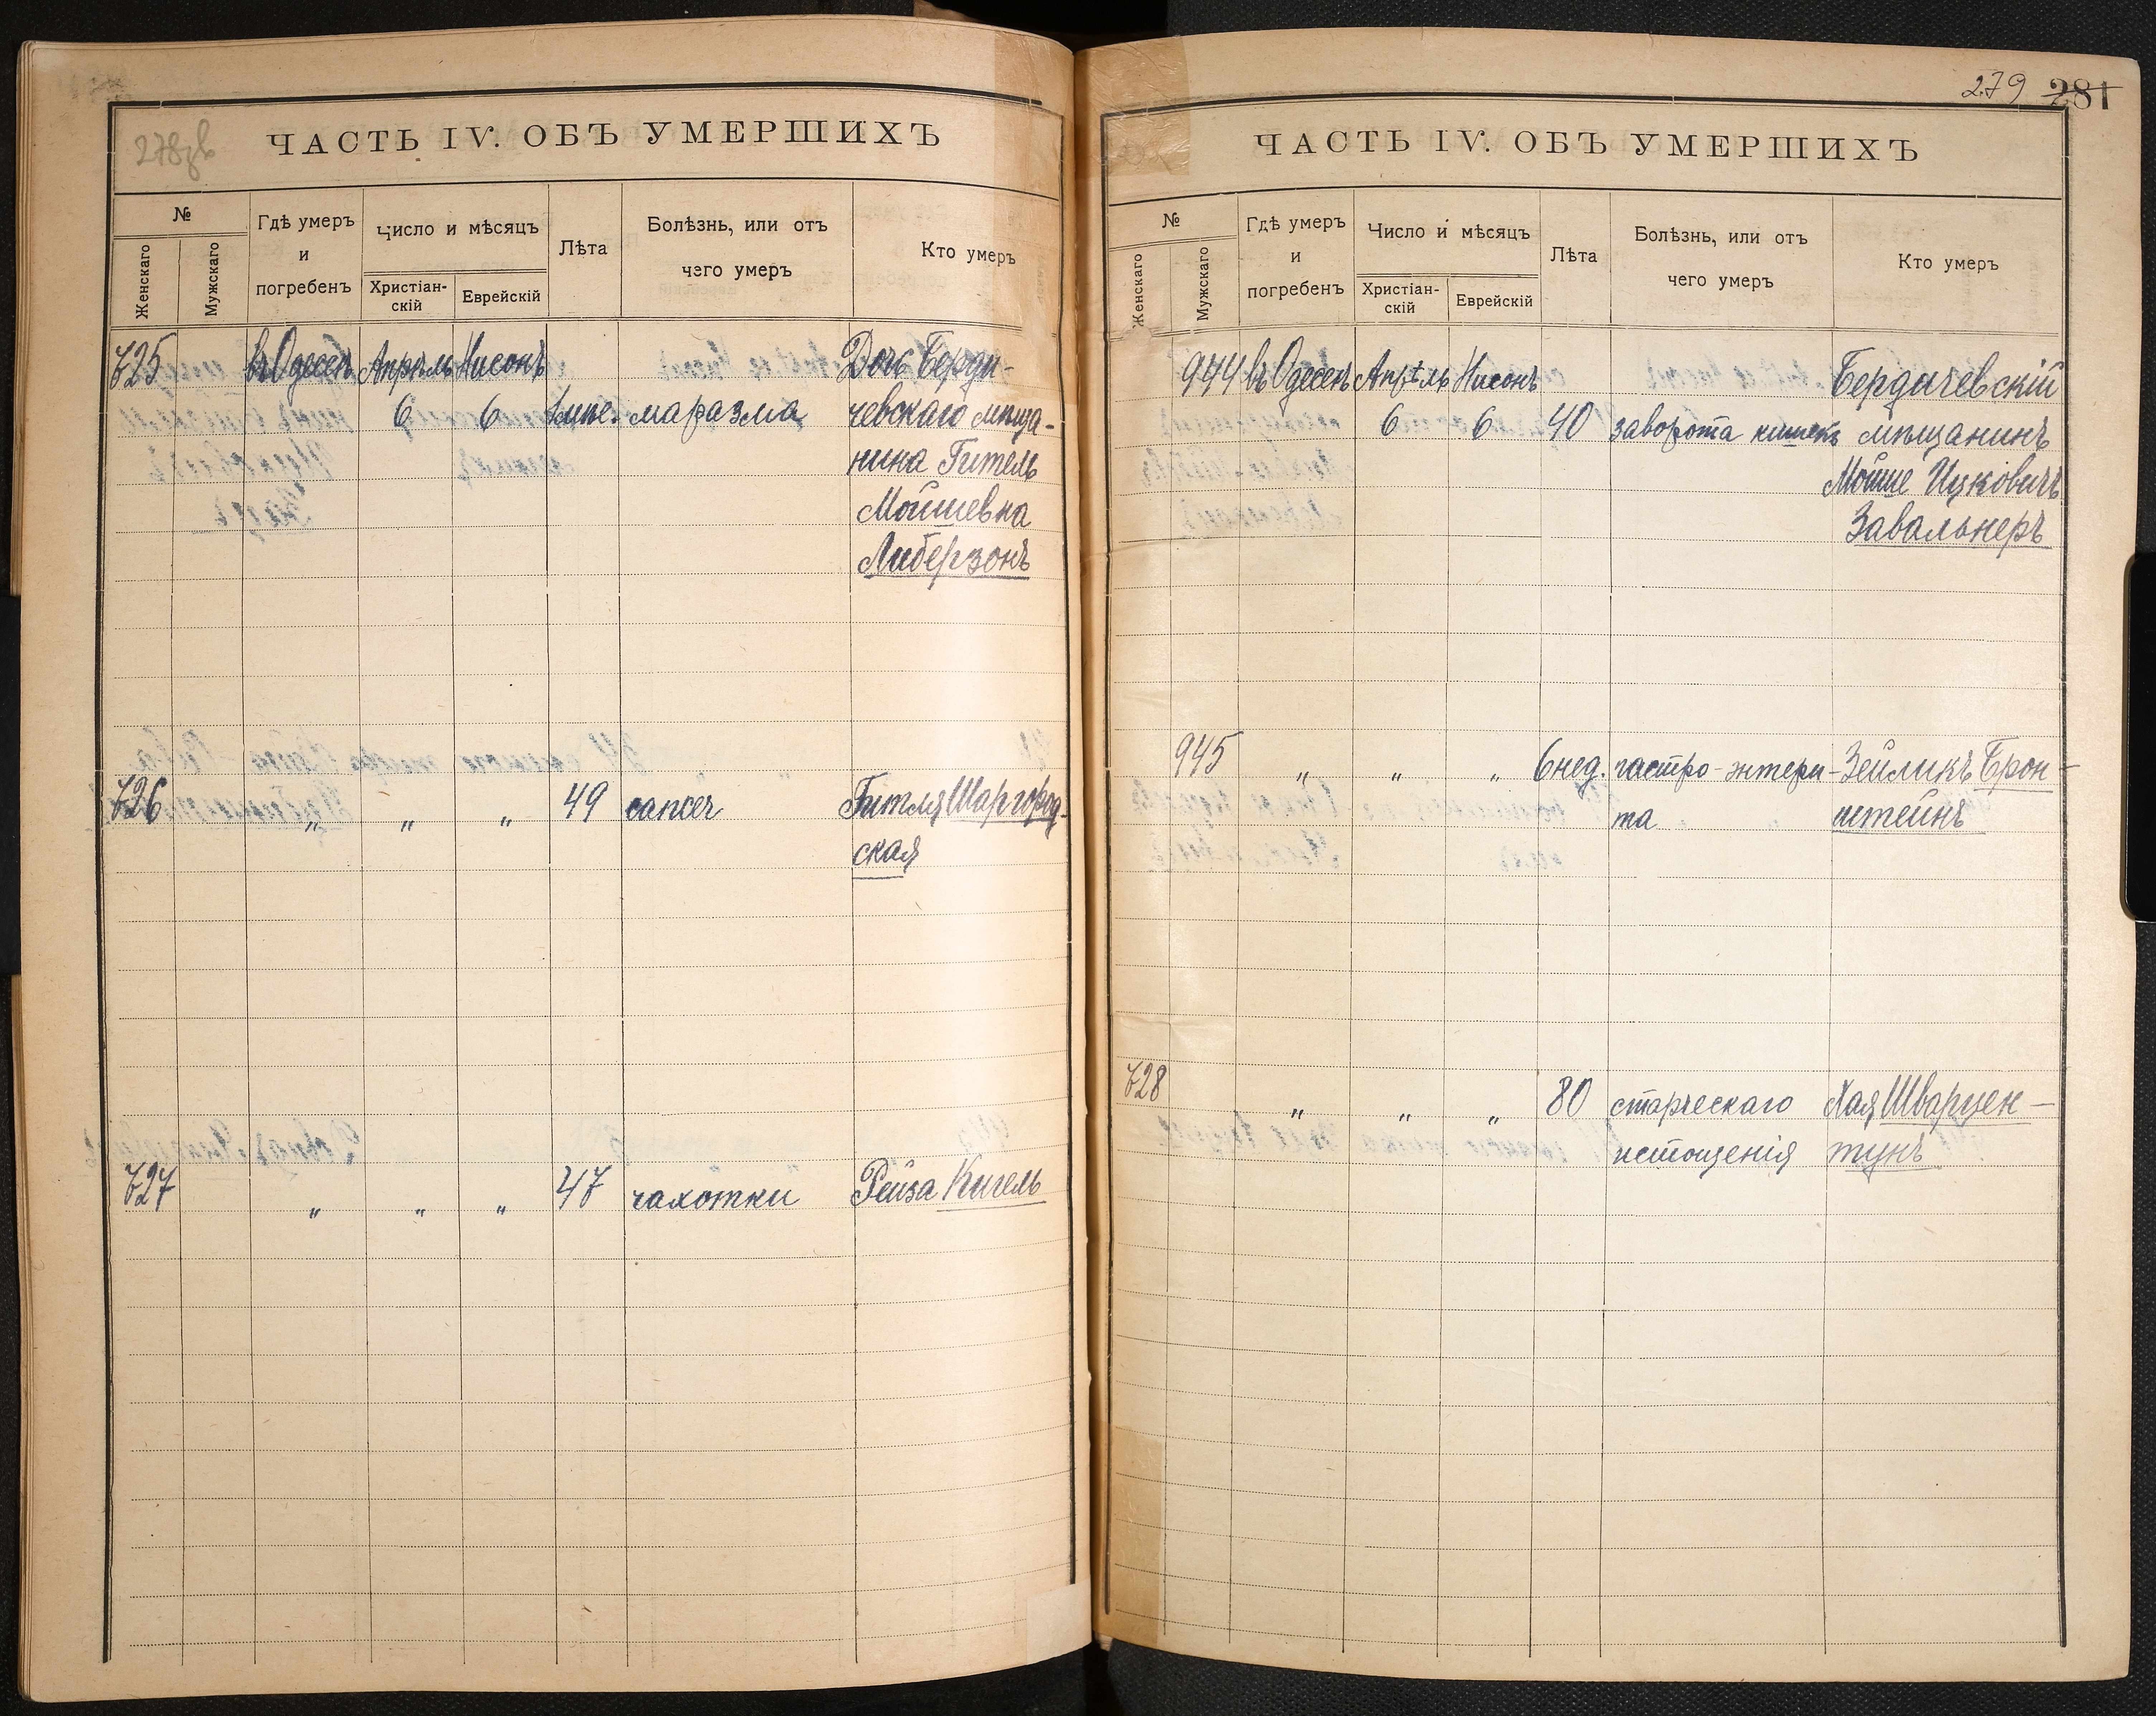 278зв
ЧАСТЬ IV. ОБЪ УМЕРШИХЪ
№
Женскаго
Мужскаго
Гдѣ умеръ
и
погребенъ
Число и мѣсяцъ
Христіан-
скій
Еврейскій
Лѣта
Болѣзнь, или отъ
чего умеръ
Кто умеръ
725 въ Одессѣ Апрѣль Нисонъ Дочь Берди-
6 6 маразма чевскаго мѣща-
нина Гитель
Мойшевна
Либерзонъ
726 „ „ „ 49 cancer Гитля Шаргород-
ская
727 „ „ „ 47 чахотки Рейза Кигель
279 281
ЧАСТЬ IV. ОБЪ УМЕРШИХЪ
№
Женскаго
Мужскаго
Гдѣ умеръ
и
погребенъ
Число и мѣсяцъ
Христіан-
скій
Еврейскій
Лѣта
Болѣзнь, или отъ
чего умеръ
Кто умеръ
944 въ Одессѣ Апрѣль Нисонъ Бердичевскій
6 6 40 заворота кишекъ мѣщанинъ
Мойше Ицковичъ
Завальнеръ
945 „ „ „ 6 нед. гастро-энтери- Зейликъ Брон-
та штейнъ
728 „ „ „ 80 старческаго Хая Шварцен-
истощенія тунъ